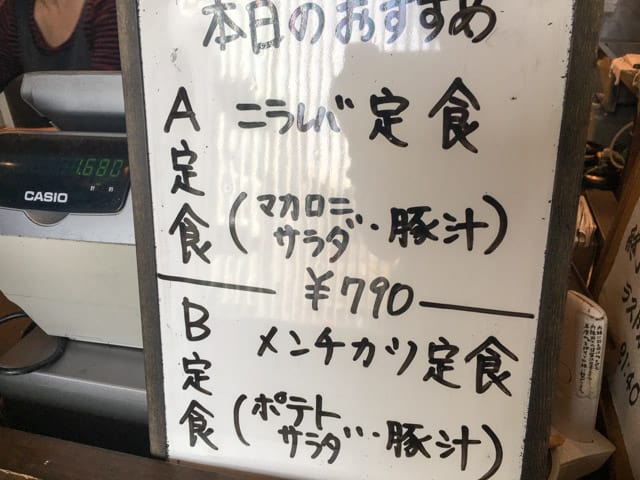 本日のおすすめ
A定食
ニラレバ定食
(マカロニサラダ・豚汁)
¥790
B定食
メンチカツ定食
(ポテトサラダ・・豚汁)
1,680
CASIO
21:40